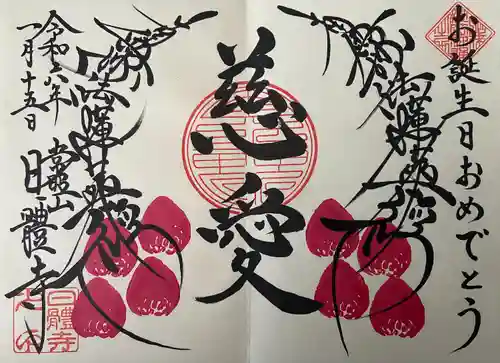 お誕生日おめでとう
南無妙法蓮華経
慈愛
南無妙法蓮華経
日體寺
令和六年
一月十五日